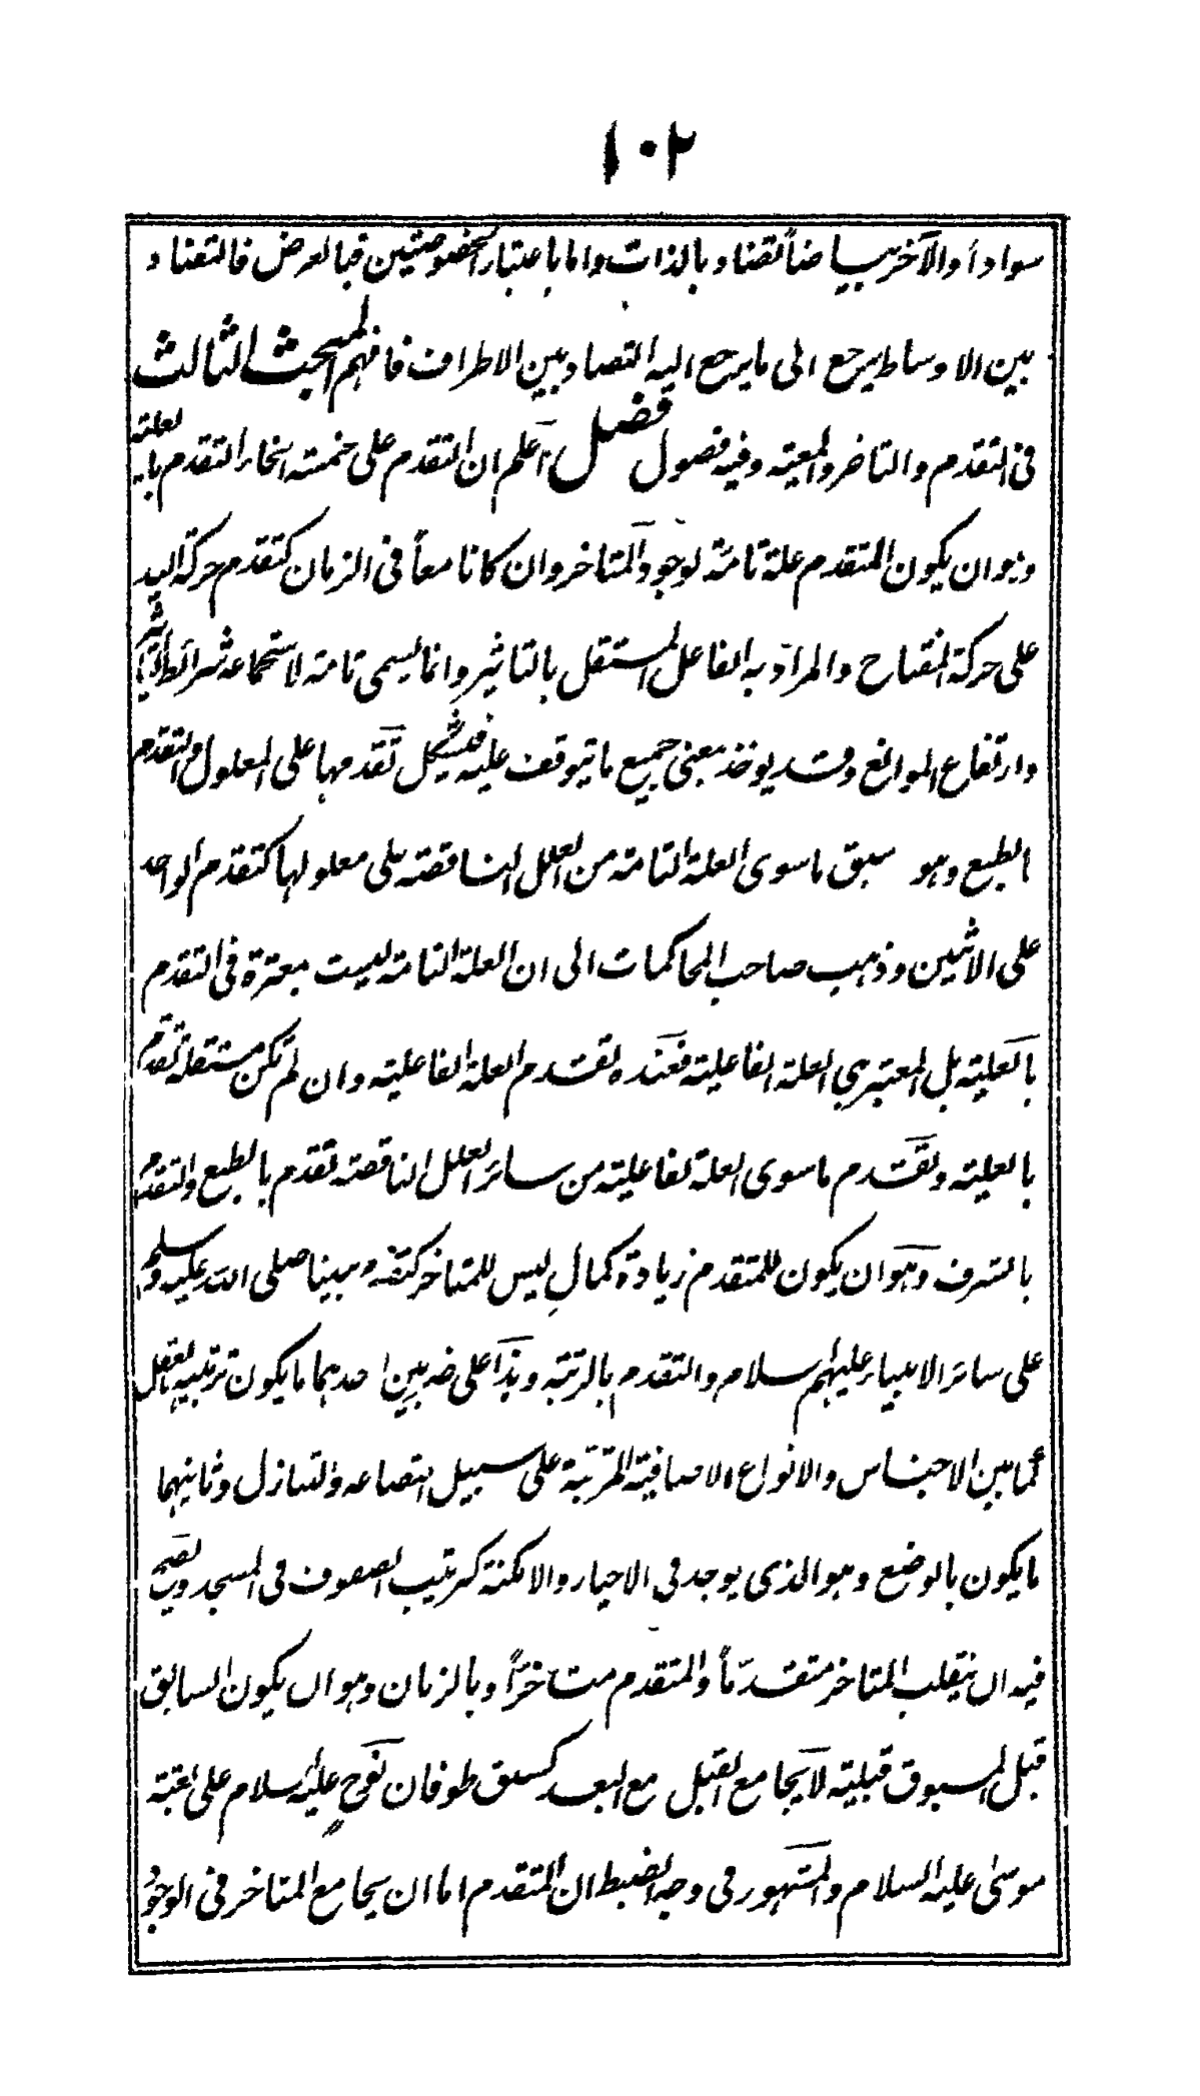 ١٠٢
سواداً والآخر بياضاً تضاد بالذات واما باعتبار الخصوصيتين فبالعرض فالتضاد
بين الاوساط يرجع الى ما يرجع اليه التضاد بين الاطراف فافهم المبحث الثالث
فى التقدم والتاخر والمعية وفيه فصول فصل اعلم ان التقدم على خمسة انحاء التقدم بالعلية
وهو ان يكون المتقدم علة تامة لوجود المتاخر وان كانا معاً فى الزمان كتقدم حركة اليد
على حركة المفتاح والمراد به الفاعل المستقل بالتاثير وانما يسمى تامة لاستجماعه شرائط التاثير
وارتفاع الموانع وقد يوخذ بمعنى جميع ما يتوقف عليه فيشكل تقدمها على المعلول والتقدم
بالطبع وهو سبق ما سوى العلة التامة من العلل الناقصة على معلولها كتقدم الواحد
على الاثنين وذهب صاحب المحاكمات الى ان العلة التامة ليست معتبرة فى التقدم
بالعلية بل المعتبر هى العلة الفاعلية فعنده تقدم العلة الفاعلية وان لم تكن مستقلة تقدم
بالعلية وتقدم ما سوى العلة الفاعلية من سائر العلل الناقصة تقدم بالطبع والتقدم
بالشرف وهو ان يكون للمتقدم زيادة كمال ليس للمتاخر كتقدم نبينا صلى الله عليه وسلم
على سائر الانبياء عليهم السلام والتقدم بالرتبة وهذا على ضربين احدهما ما يكون ترتيبه بالعقل
كما بين الاجناس والانواع الاضافية المترتبة على سبيل التصاعد والتنازل وثانيهما
ما يكون بالوضع وهو الذى يوجد فى الاحياز والامكنة كترتيب الصفوف فى المسجد ويصح
فيه ان ينقلب المتاخر متقدماً والمتقدم متاخراً وبالزمان وهو ان يكون السابق
قبل المسبوق قبلية لا يجامع القبل مع البعد كسبق طوفان نوح عليه السلام على بعثة
موسىٰ عليه السلام والمشهور فى وجه الضبط ان المتقدم اما ان يجامع المتاخر فى الوجود